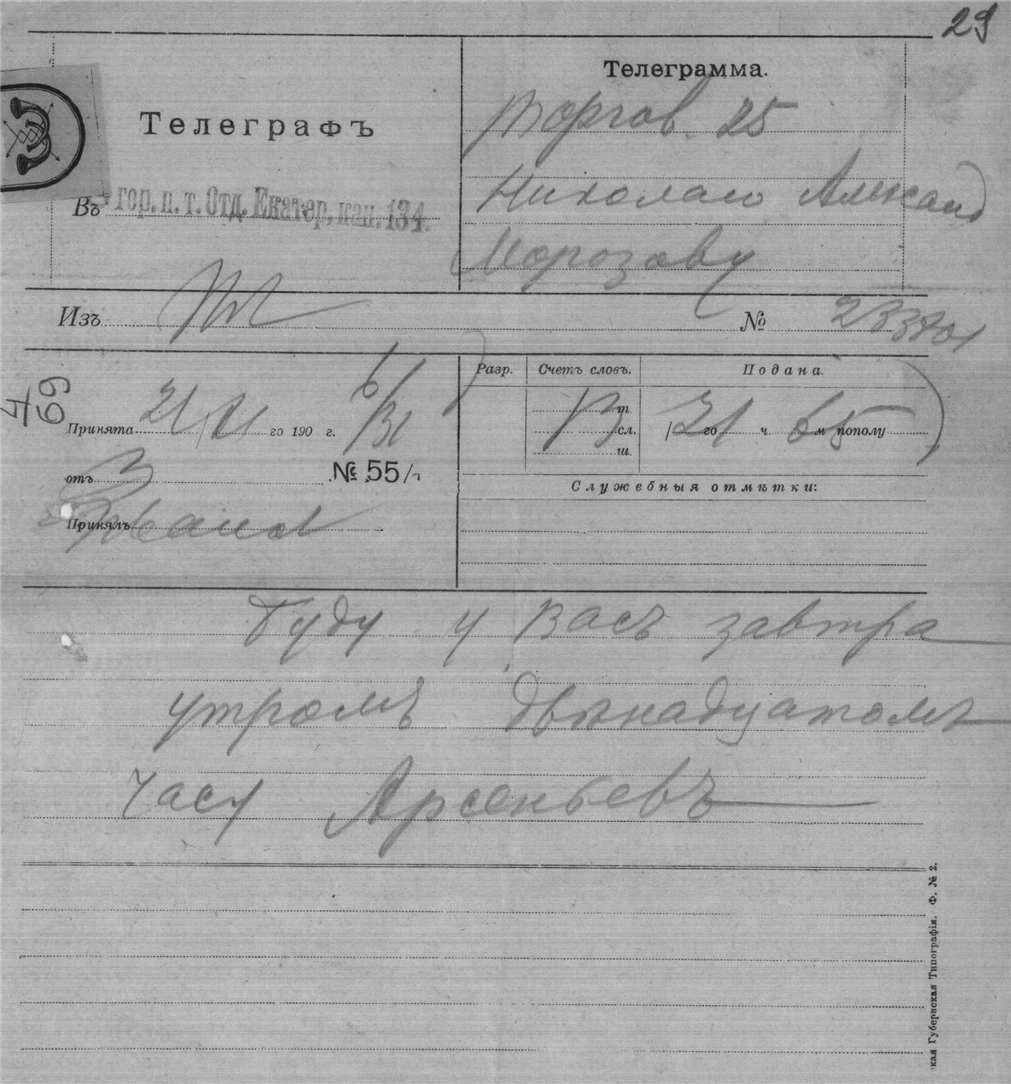 29
Телеграфъ
Въ гор. п. т. Отд. Екатер, кан. 134.
Телеграмма.
Торгов. 25
Николаю Александ
Морозову
Изъ
№
4
69
Принята 21/ го 190 г.
отъ № 55/
Принялъ
Разр. Счетъ словъ. Подана.
т
сл.
ш.
21 го ч. м. пополу
Служебныя отмѣтки:
буду у васъ завтра
утромъ двѣнадцатомъ
часу Арсеньевъ
кая Губернская Типографія. Ф. № 2.